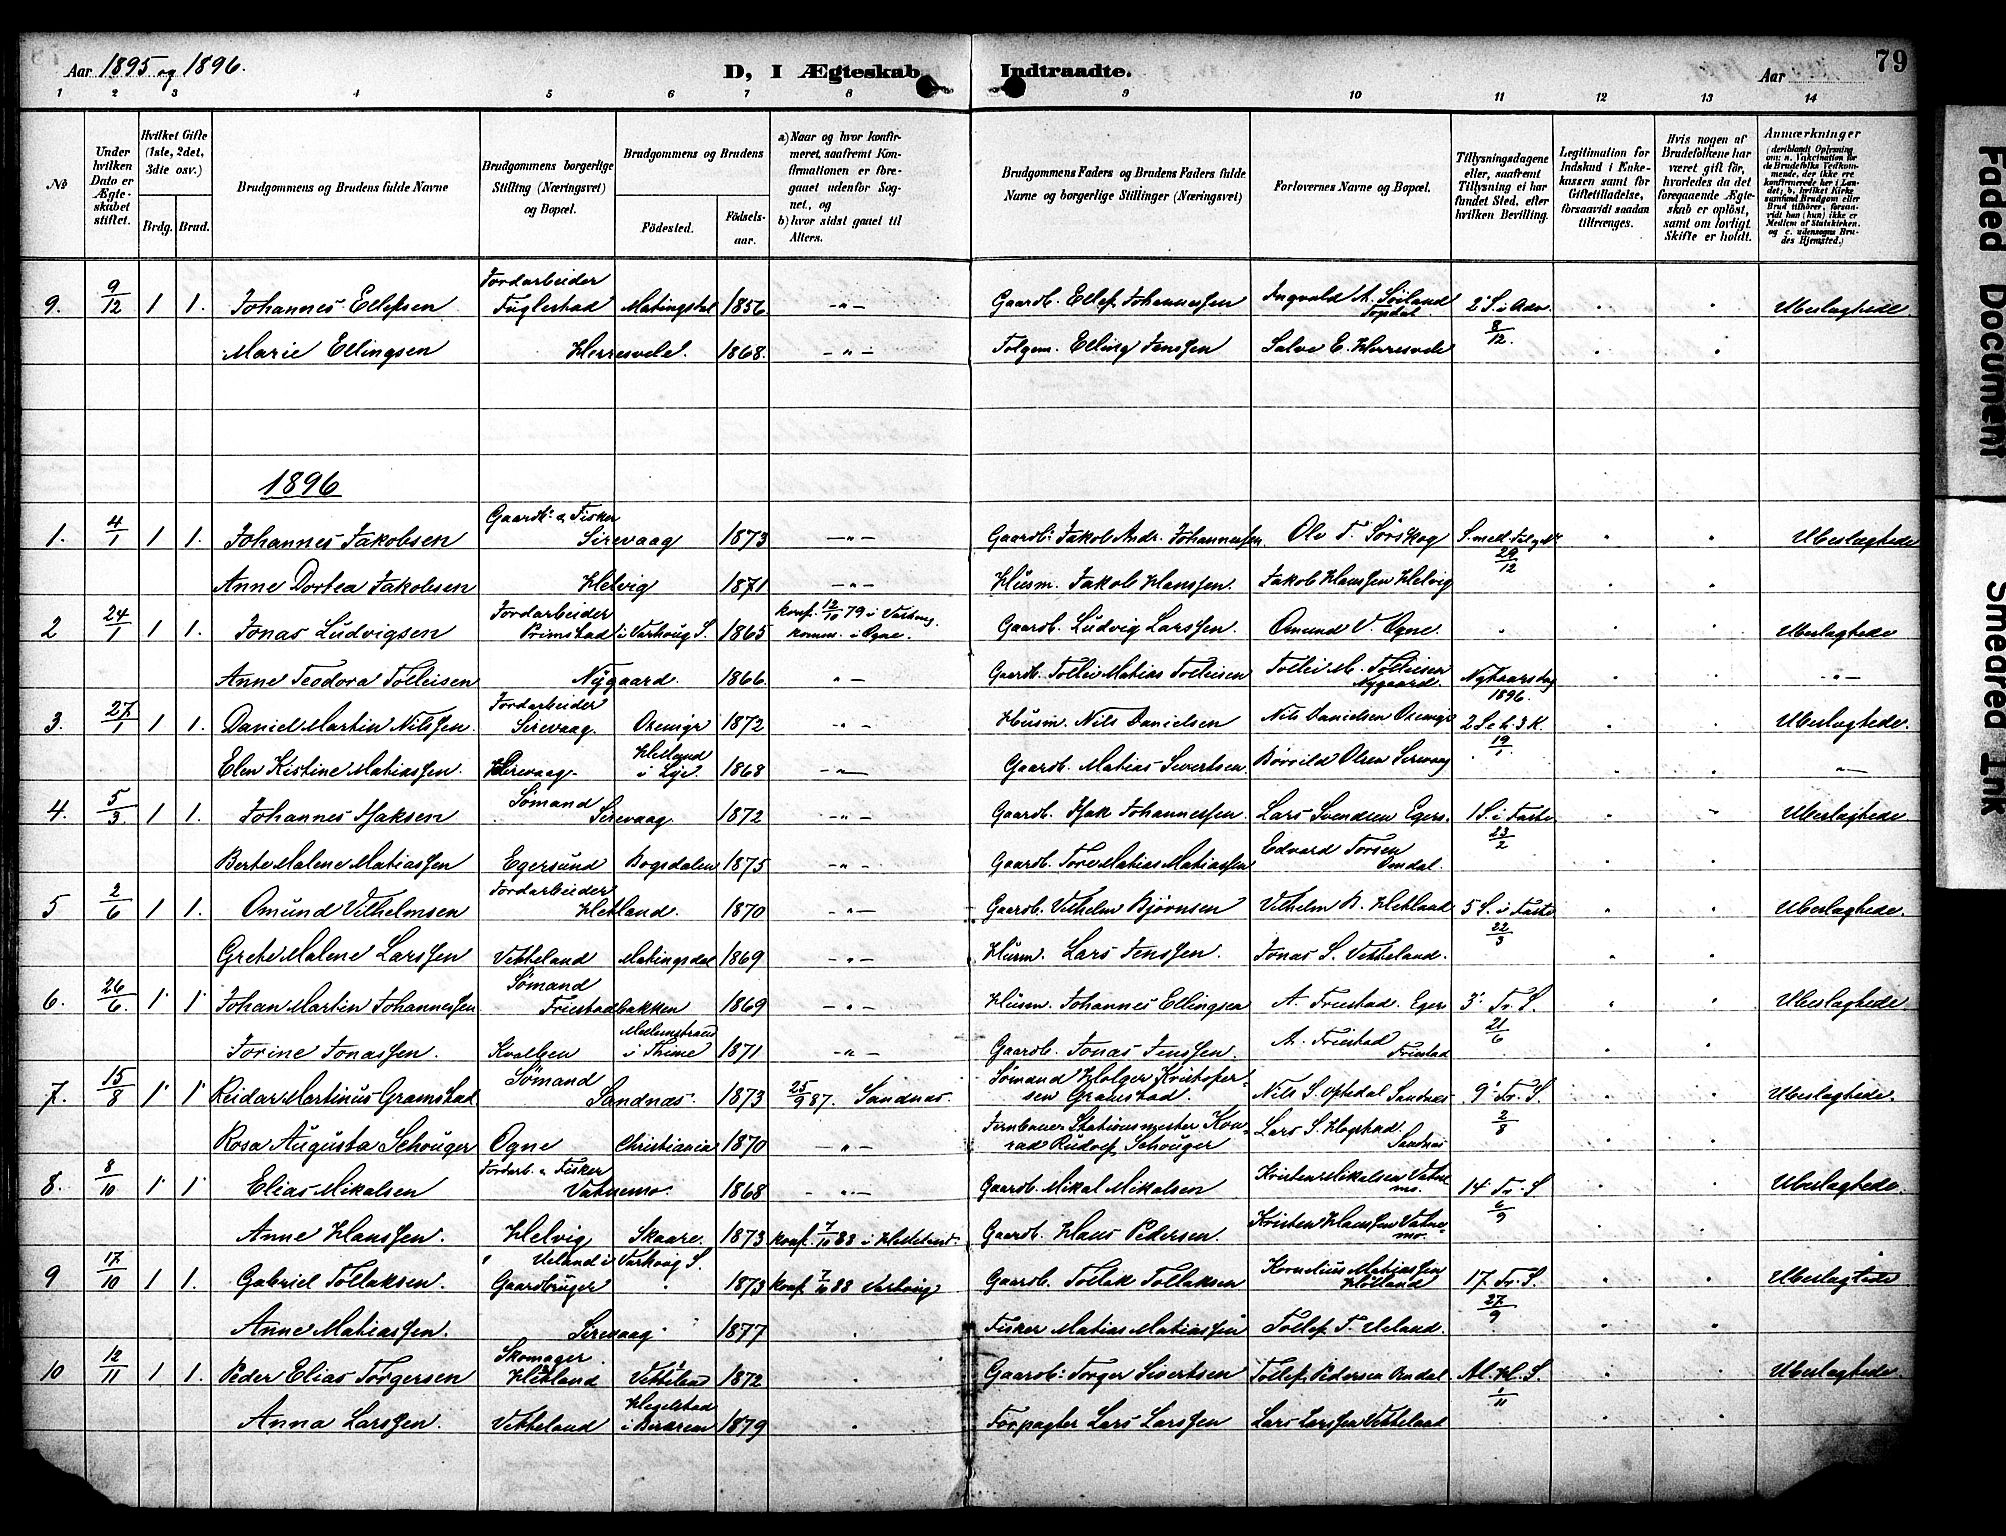 Aar 1895 og 1896.
D, I Ægteskab Indtraadte.
Aar
79
1 2 3 4 5 6 7 8 9 10 11 12 13 14
No
Under hvilken Dato er Ægteskabet stiftet.
Hvilket Gifte (1ste, 2det, 3die osv.)
Brdg. Brud.
Brudgommens og Brudens fulde Navne
Brudgommens borgerlige Stilling (Næringsvei) og Bopæl.
Brudgommens og Brudens
Födested.
Födselsaar.
a) Naar og hvor konfirmeret, saafremt Konfirmationen er foregaaet udenfor Sognet, og
b) hvor sidst gaaet til Alters.
Brudgommens Faders og Brudens Faders fulde Navne og borgerlige Stillinger (Næringsvei)
Forlovernes Navne og Bopæl.
Tillysningsdagene eller, saafremt Tillysning ei har fundet Sted, efter hvilken Bevilling.
Legitimation for Indskud i Enkekassen samt for Giftetilladelse, forsaavidt saadan tiltrænges.
Hvis nogen af Brudefolkene har været gift før, hvorledes da det foregaaende Ægteskab er oplöst, samt om lovligt Skifte er holdt.
Anmærkninger (deriblandt Oplysning om: a. Vakcination for de Brudefolks Vedkommende, der ikke ere konfirmerede her i Landet; b. hvilket Kirkesamfund Brudgom eller Brud tilhörer, forsaavidt han (hun) ikke er Medlem af Statskirken, og c. udensogns Brudes Hjemsted.)
9. 9/12 1 1. Johannes Ellefsen Jordarbeider Fuglestad Matingsdal 1856 -"- Gaardb. Ellef Johannessen Ingvald A. Söiland Sopdal 2 S. i Adv. 8/12. " " Ubeslægtede
Marie Ellingsen Herresvele. 1868. -"- Folgem. Elling Jenssen Salve E. Herresvele
1896
1. 4/1 1 1. Johannes Jakobsen Gaardb. & Fisker Sirevaag 1873 -"- Gaardb: Jakob Andr. Johannessen. Ole T. Sörskog 29/12 Ubeslægtede
Anne Dortea Jakobsen Helvig 1871 -"- Husm. Jakob Hanssen. Jakob Hanssen Helvig
2 24/1 1 1. Jonas Ludvigsen Jordarbeider Primstad i Varhoug S. 1865 konf. 12/10 79 i Varhoug komm. i Ogne. Gaardb. Ludvig Larssen. Omund V. Ogne. Ubeslægtede
Anne Teodora Tolleisen Nygaard. 1866. -"- Gaardb. Tollei Matias Tolleisen Tollei M. Tolleisen Nygaard. Nytaarsdag 1896. -"-
3. 27/1 1 1. Daniel Martin Nilssen. Jordarbeider Sirevaag. 1872 -"- Husm. Nils Danielsen Nils Danielsen 2 S. e. h. 3 K. 19/1 Ubeslægtede.
Elen Kistine Matiassen. Sirevaag. Helland i Lye. 1868 -"- Gaardb. Matias Sivertsen Börild Olsen Sirevaag -"-
4. 5/3 1 1. Johannes Isaksen Sömand Sirevaag. 1872 -"- Gaardb. Isak Johannessen. Lars Svendsen Egers. 1 S. i Faste 23/2 Ubeslægtede
Berte Malene Matiassen Egersund Bogsdalen 1875 -"- Gaardb. Tore Matias Matiassen Edvard Torsen Omdal.
5 2/6 1 1. Omund Vilhelmsen Jordarbeider Hetland. 1870 -"- Gaardb. Vilhelm Bjørnsen Vilhelm B. Hetland 5 S. i Faste 22/3 Ubeslægtede.
Grete Malene Larssen Vetteland Matingsdal 1869 -"- Husm. Lars Jenssen. Jonas S. Vetteland.
6. 26/6. 1 1 Johan Martin Johannessen Sömand Friestadbakken 1869 -"- Husm. Johannes Ellingsen A. Friestad. Eger 3' Tr. S. 21/6 Ubeslægtede.
Jorine Jonassen. Kvalben i Thime 1871 -"- Gaardb. Jonas Jenssen. A. Friestad Friestad
7. 15/8 1 1 Reidar Martinus Gramstad Sömand Sandnæs. 1873 25/9 87. Sandnæs. Sömand Holger Kristofersen Gramstad. Nils S. Opsdal Sandnes 9' Tr. S. 2/8 Ubeslægtede.
Rosa Augusta Schouger Ogne Christiania 1870 -"- Jernbane Stationsmester Konrad Rudolf Schouger Lars S. Hogstad Sandnæs
8. 8/10 1 1 Elias Mikalsen Jordarb. & Fisker Vatnemo. 1868 -"- Gaardb. Mikal Mikalsen Kristen Mikalsen Vatnemo. 14' Tr. S. 6/9 Ubeslægtede.
Anne Hanssen. Helvig Skaare. 1873 konf. 7/10 88 i Helleland. Gaardb. Hans Pedersen. Kristen Hanssen Vatnemo.
9 17/10 1 1. Gabriel Tollaksen. Ueland i Varhoug S. Gaardbruger " 1873 konf. 7/10 88 Varhoug Gaardb. Tollak Tollaksen Kornelius Matiassen Hölland 17. Tr. S. 27/9 Ubeslægtede
Anne Matiassen. Sirevaag 1877 Fisker Matias Matiassen Tollef T. Ueland.
10 12/11 1 1. Peder Elias Torgersen Skomager. Hetland Vetteland 1872 Gaardb: Torger Sivertsen Tollef Pedersen Omdal Al. Hl. S. 1/11 Ubeslægtede.
Anna Larssen. Vetteland Hegelstad i Bjerkrem 1879 Forpagter Lars Larssen Lars Larssen Vetteland
Faded Document
Smeared Ink